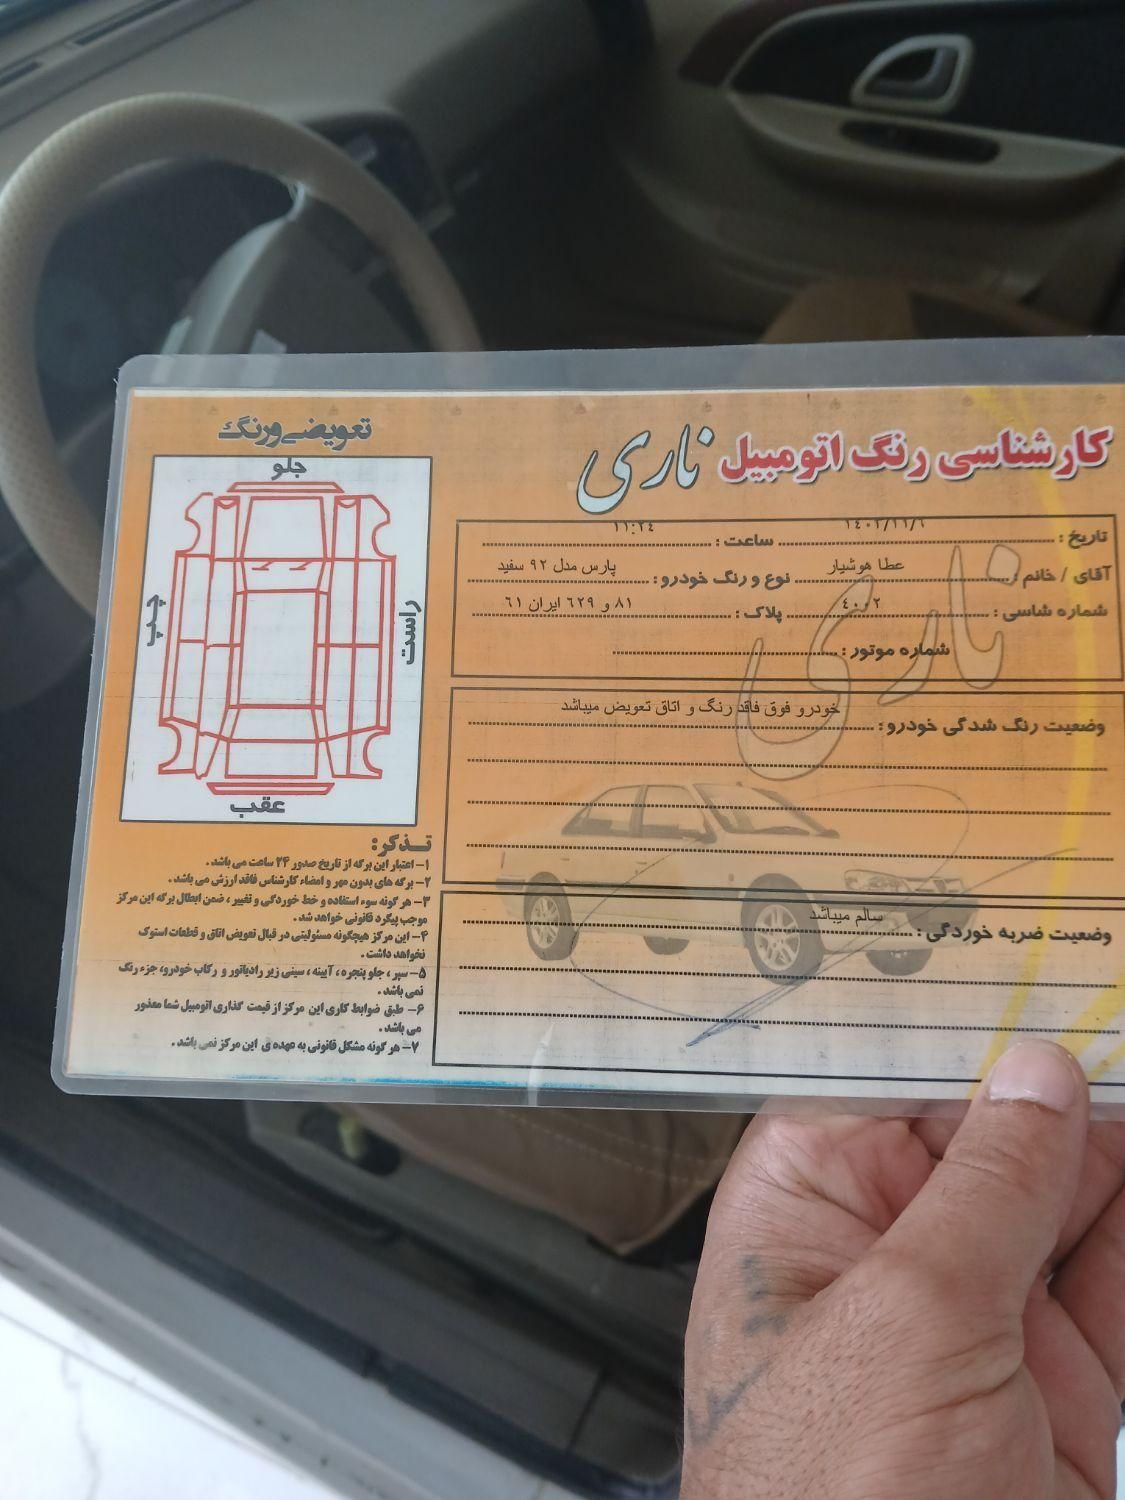 کارشناسی رنگ اتومبیل ناری
تاریخ : ساعت : ۱۱:۲۴
آقای / خانم : عطا هوشیار نوع و رنگ خودرو : پارس مدل ۹۲ سفید
شماره شاسی : ۴۰۰۲ پلاک : ۸۱ و ۶۲۹ ایران ۶۱
شماره موتور :
وضعیت رنگ شدگی خودرو : خودرو فوق فاقد رنگ و اتاق تعویض میباشد
وضعیت ضربه خوردگی : سالم میباشد
ناری
تعویضی ورنگ
جلو
چپ
راست
عقب
تـذکر:
۱- اعتبار این برگه از تاریخ صدور ۲۴ ساعت می باشد .
۲- برگه های بدون مهر و امضاء کارشناس فاقد ارزش می باشد .
۳- هر گونه سوء استفاده و خط خوردگی و تغییر ، ضمن ابطال برگه این مرکز
موجب پیگرد قانونی خواهد شد .
۴- این مرکز هیچگونه مسئولیتی در قبال تعویض اتاق و قطعات استوک
نخواهد داشت .
۵- سپر ، جلو پنجره ، آیینه ، سینی زیر رادیاتور و رکاب خودرو، جزء رنگ
نمی باشد .
۶- طبق ضوابط کاری این مرکز از قیمت گذاری اتومبیل شما معذور
می باشد .
۷- هر گونه مشکل قانونی به عهده ی این مرکز نمی باشد .